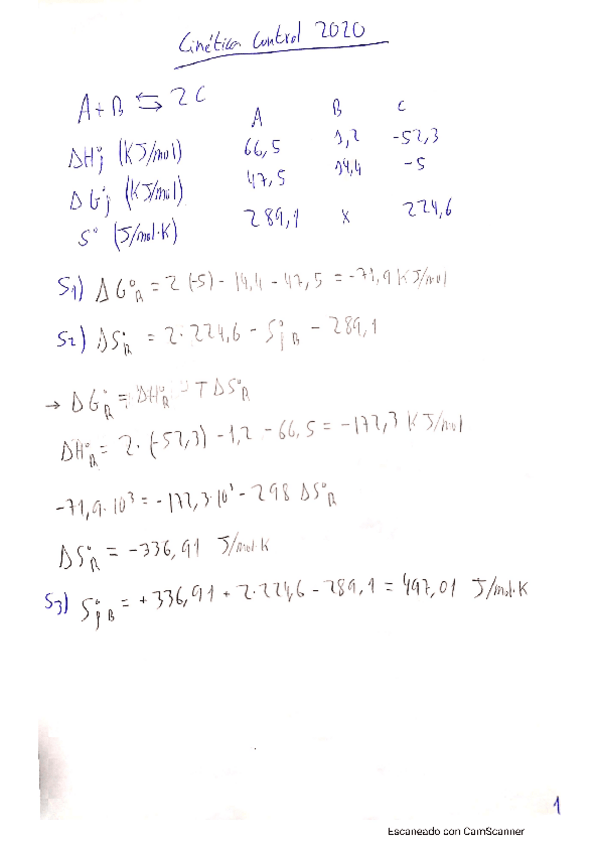 Cinética Control 2020
A+B ⇆ 2C
A B C
ΔH°f (KJ/mol) 66,5 1,2 -52,3
ΔG°f (KJ/mol) 47,5 14,4 -5
S° (J/mol·K) 289,1 x 224,6
S1) ΔG°R = 2(-5) - 14,4 - 47,5 = -71,9 KJ/mol
S2) ΔS°R = 2·224,6 - S°f B - 289,1
→ ΔG°R = ΔH°R - TΔS°R
ΔH°R = 2·(-52,3) - 1,2 - 66,5 = -172,3 KJ/mol
-71,9·10³ = -172,3·10³ - 298 ΔS°R
ΔS°R = -336,91 J/mol·K
S3) S°f B = +336,91 + 2·224,6 - 289,1 = 497,01 J/mol·K
1
Escaneado con CamScanner